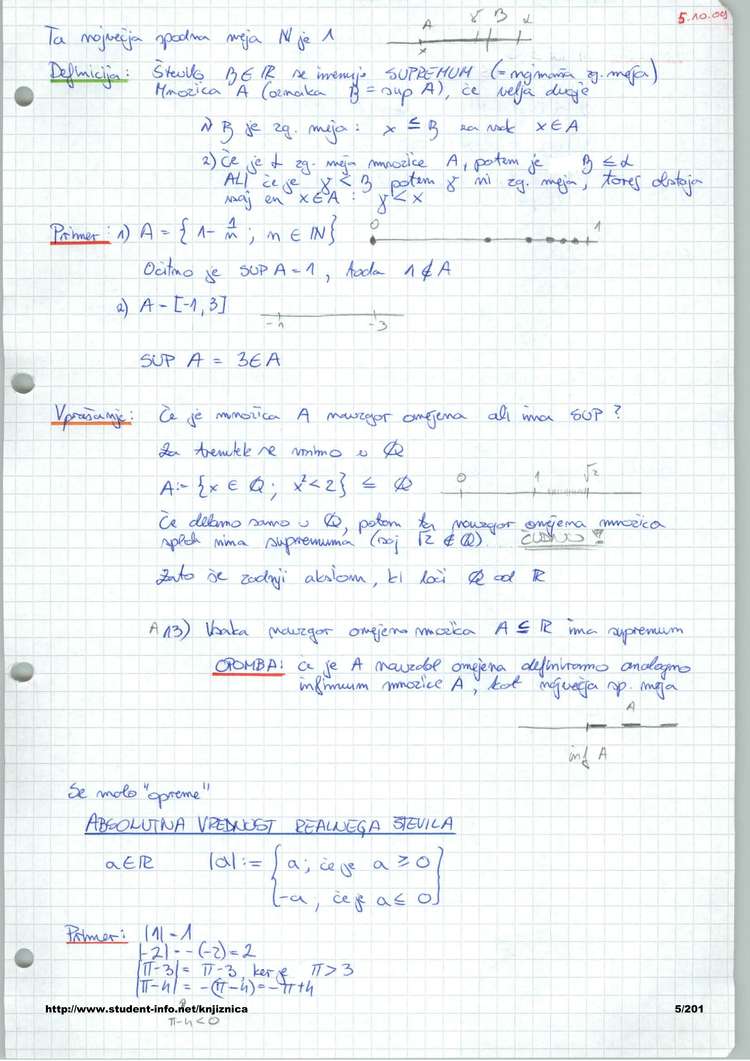 5.10.09
Ta največja spodna meja N je 1
A γ B α
x
Definicija: Število B ∈ ℝ se imenuje SUPREMUM (= najmanša zg. meja)
Množica A (oznaka B = sup A), če velja dvoje
1) B je zg. meja: x ≤ B za vsak x ∈ A
2) Če je α zg. meja množice A, potem je B ≤ α
ALI če je γ < B potem γ ni zg. meja, torej obstaja
vsaj en x ∈ A : γ < x
Primer: 1) A = { 1 - 1/n ; n ∈ ℕ }
0 1
Očitno je SUP A = 1, toda 1 ∉ A
2) A = [-1, 3]
-1 -3
SUP A = 3 ∈ A
Vprašanje: Če je množica A navzgor omejena ali ima SUP ?
Za trenutek se vrnimo v ℚ
A := { x ∈ ℚ ; x² < 2 } ≤ ℚ
0 1 √2
Če delamo samo v ℚ, potem ta navzgor omejena množica
sploh nima supremuma (saj √2 ∉ ℚ). ČUDNO !
Zato še zadnji aksiom, ki loči ℚ od ℝ
A 13) Vsaka navzgor omejena množica A ⊆ ℝ ima supremum
OPOMBA: če je A navzdol omejena definiramo analogno
infimum množice A, kot največja sp. meja
A
inf A
Še malo "opreme"
ABSOLUTNA VREDNOST REALNEGA ŠTEVILA
a ∈ ℝ |a| := { a ; če je a ≥ 0
-a , če je a ≤ 0 }
Primer: |1| = 1
|-2| = -(-2) = 2
|π-3| = π-3, ker je π > 3
|π-4| = -(π-4) = -π+4
π-4 < 0
http://www.student-info.net/knjiznica
5/201